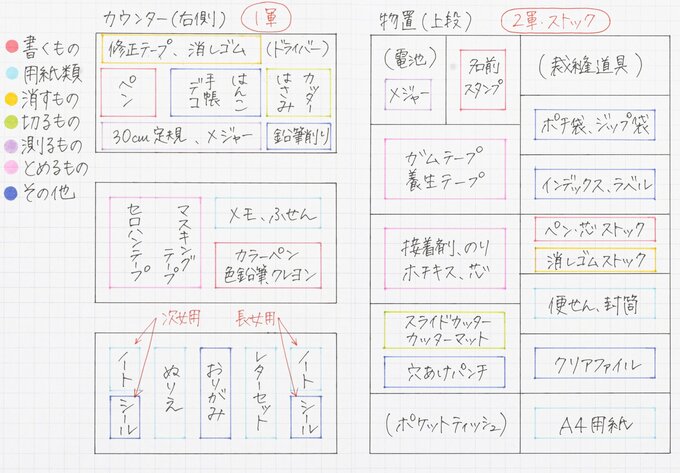 カウンター(右側) 1軍
書くもの
用紙類
消すもの
切るもの
測るもの
とめるもの
その他
修正テープ、消しゴム
(ドライバー)
ペン
手帳
デコ
はんこ
カッター
はさみ
30cm定規、メジャー
鉛筆削り
マスキング
テープ
セロハンテープ
メモ、ふせん
カラーペン
色鉛筆、クレヨン
次女用
長女用
ノート
シール
ぬりえ
おりがみ
レターセット
ノート
シール
物置(上段) 2軍・ストック
(電池)
メジャー
名前
スタンプ
(裁縫道具)
ポチ袋、ジップ袋
ガムテープ
養生テープ
インデックス、ラベル
接着剤、のり
ホチキス、芯
ペン・芯ストック
消しゴムストック
スライドカッター
カッターマット
便せん、封筒
穴あけパンチ
クリアファイル
(ポケットティッシュ)
A4用紙